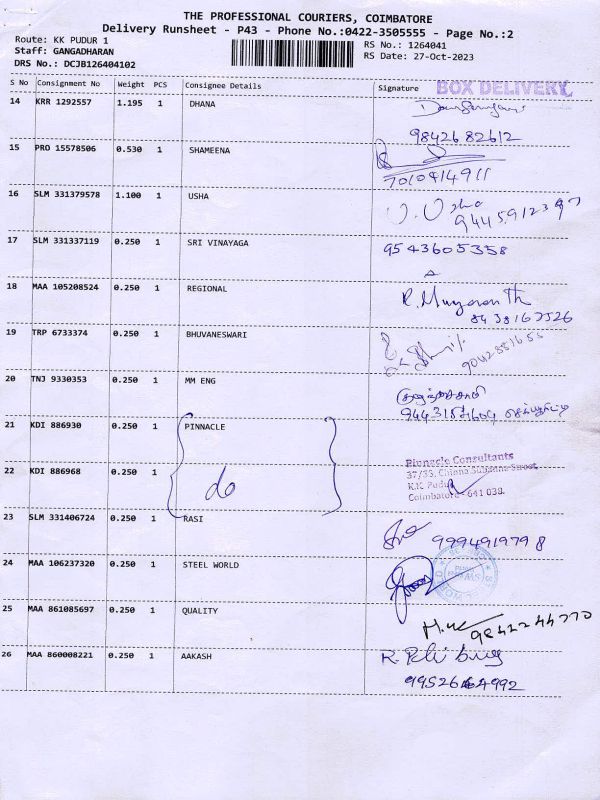 THE PROFESSIONAL COURIERS, COIMBATORE
Delivery Runsheet - P43 - Phone No.:0422-3505555 - Page No.:2
Route: KK PUDUR 1
RS No.: 1264041
Staff: GANGADHARAN
RS Date: 27-Oct-2023
DRS No.: DCJB126404102
S No Consignment No Weight PCS Consignee Details Signature BOX DELIVERY
14 KRR 1292557 1.195 1 DHANA
9842682612
15 PRO 15578506 0.530 1 SHAMEENA
7010414911
16 SLM 331379578 1.100 1 USHA U. Usha
9445912397
17 SLM 331337119 0.250 1 SRI VINAYAGA 9543605358
18 MAA 105208524 0.250 1 REGIONAL
8438167526
19 TRP 6733374 0.250 1 BHUVANESWARI
20 TNJ 9330353 0.250 1 MM ENG
21 KDI 886930 0.250 1 PINNACLE
Pinnacle Consultants
37/35, Chinna Subbanna Street,
22 KDI 886968 0.250 1 do
K.K. Pudur
Coimbatore - 641 038.
23 SLM 331406724 0.250 1 RASI
9994919798
24 MAA 106237320 0.250 1 STEEL WORLD
25 MAA 861085697 0.250 1 QUALITY
9842244770
26 MAA 860008221 0.250 1 AAKASH
9952664992